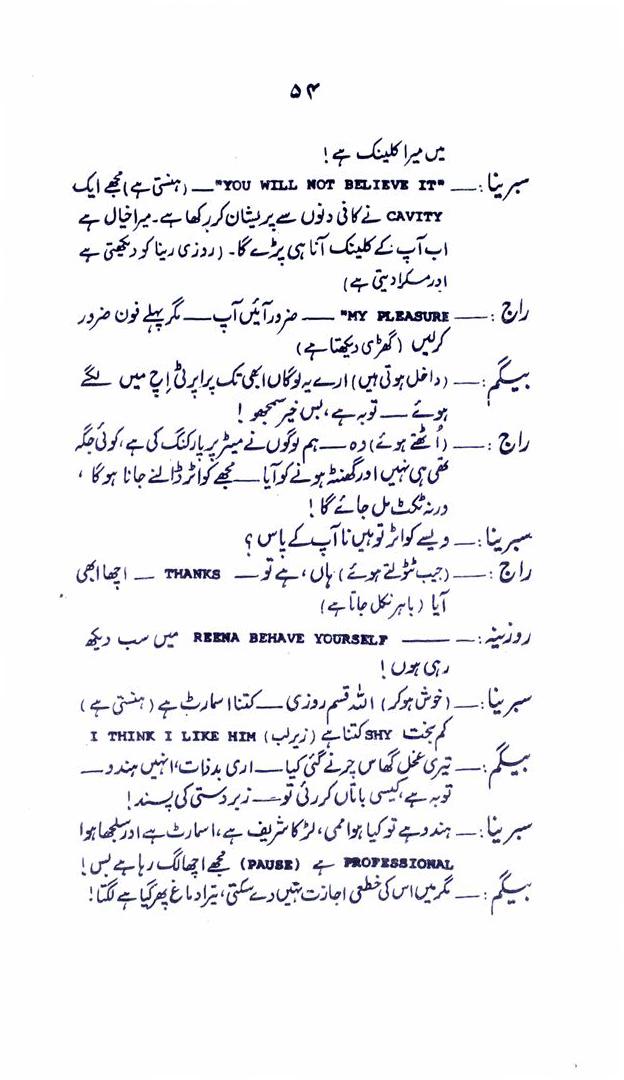 ۵۴
میں میرا کلینک ہے !
سبرینا :ــ "YOU WILL NOT BELIEVE IT" ــ (ہنستی ہے) مجھے ایک
CAVITY نے کافی دنوں سے پریشان کر رکھا ہے ۔ میرا خیال ہے
اب آپ کے کلینک آنا ہی پڑے گا ۔ (روزی رینا کو دیکھتی ہے
اور مسکرا دیتی ہے)
راج :ــ "MY PLEASURE ــ ضرور آئیں آپ ــ مگر پہلے فون ضرور
کرلیں (گھڑی دیکھتا ہے)
بیگم :ــ (داخل ہوتی ہیں) ارے یہ لوگاں ابھی تک پراپرٹی اِچ میں لگے
ہوئے ــ توبہ ہے ، بس خیر سمجھو !
راج :ــ (اُٹھتے ہوئے) وہ ــ ہم لوگوں نے میٹر پر پارکنگ کی ہے ، کوئی جگہ
تھی ہی نہیں اور گھنٹہ ہونے کو آیا ــ مجھے کواٹر ڈالنے جانا ہوگا ،
ورنہ ٹکٹ مل جائے گا !
سبرینا :ــ ویسے کواٹر تو ہیں نا آپ کے پاس ؟
راج :ــ (جیب ٹٹولتے ہوئے) ہاں ، ہے تو ــ THANKS ــ اچھا ابھی
آیا (باہر نکل جاتا ہے)
روزینہ :ــ REENA BEHAVE YOURSELF میں سب دیکھ
رہی ہوں !
سبرینا :ــ (خوش ہوکر) اللہ قسم روزی ــ کتنا اسمارٹ ہے (ہنستی ہے)
کم بخت SHY کتنا ہے (زیرلب) I THINK I LIKE HIM
بیگم :ــ تیری عخل گھاس چرنے گئی کیا ــ اری بدذات ، انہیں ہندو ــ
توبہ ہے ، کیسی باتاں کررئی تو ــ زبردستی کی پسند !
سبرینا :ــ ہندو ہے تو کیا ہوا ممی ، لڑکا شریف ہے ، اسمارٹ ہے اور سلجھا ہوا
PROFESSIONAL ہے (PAUSE) مجھے اچھا لگ رہا ہے بس !
بیگم :ــ مگر میں اس کی خطعی اجازت نہیں دے سکتی ، تیرا دماغ پھر گیا ہے لگتا !